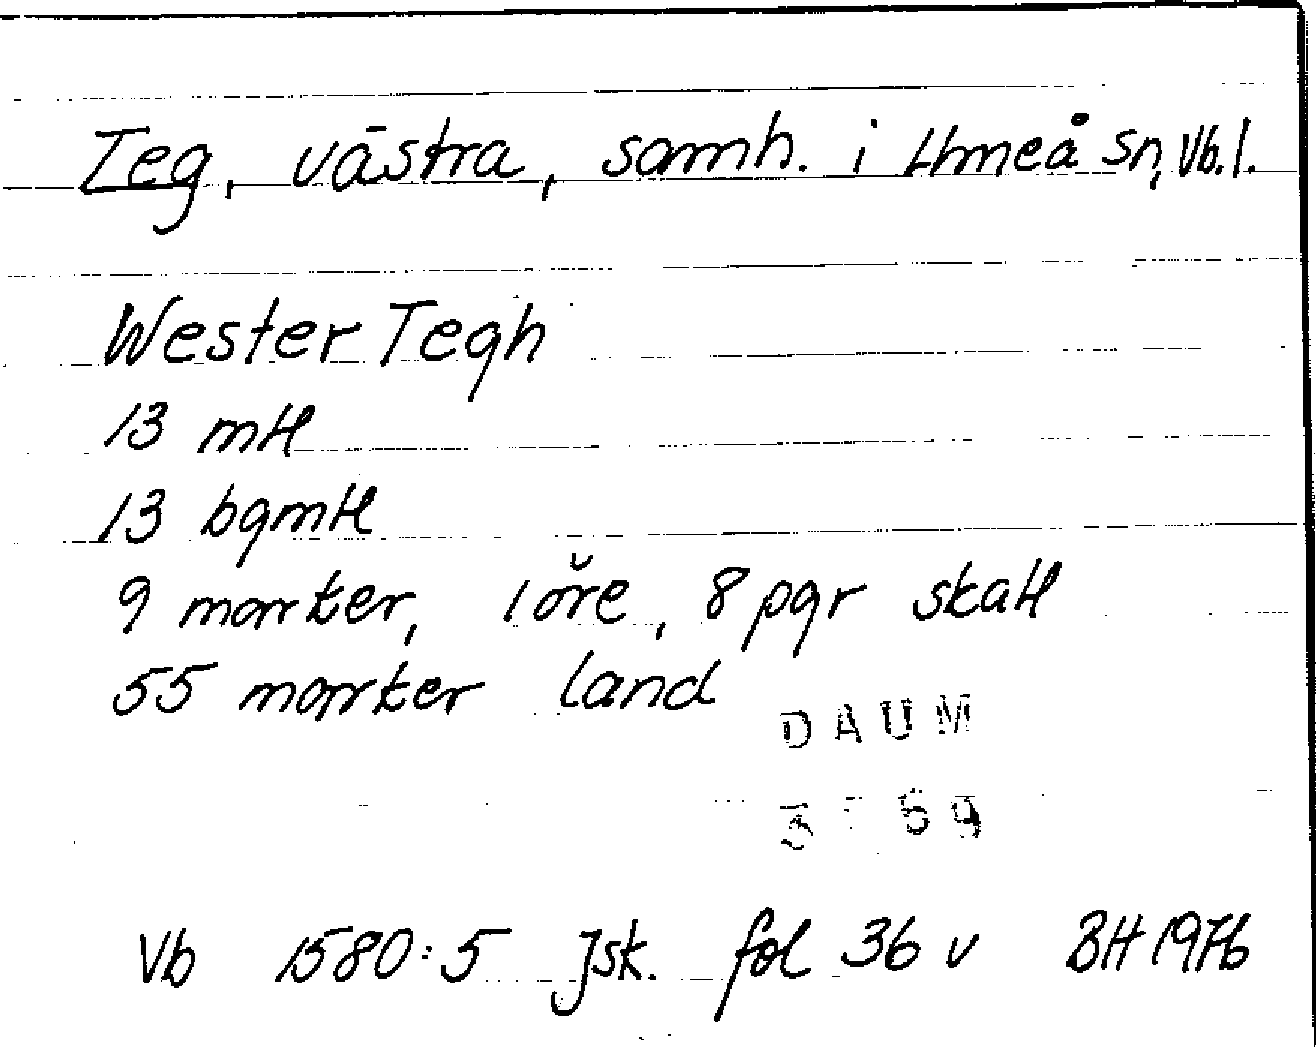 Teg, västra, samh. i Umeå sn, Vb. l.
Wester Tegh
13 mtl
13 bgmtl
9 marker, 1 öre, 8 pgr skatt
55 marker land
DAUM
69
Vb 1580:5 Jsk. fol 36 v BH 1976